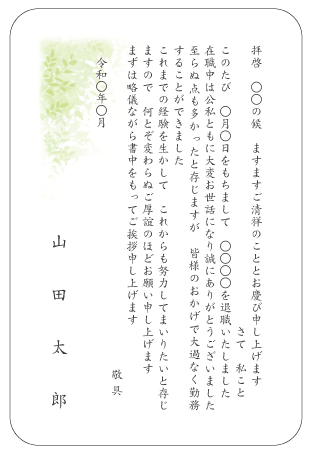 拝啓　〇〇の候　ますますご清祥のこととお慶び申し上げます
さて　私こと
このたび　〇月〇日をもちまして　〇〇〇〇を退職いたしました
在職中は公私ともに大変お世話になり誠にありがとうございました
至らぬ点も多かったと存じますが　皆様のおかげで大過なく勤務
することができました
これまでの経験を生かして　これからも努力してまいりたいと存じ
ますので　何とぞ変わらぬご厚誼のほどお願い申し上げます
まずは略儀ながら書中をもってご挨拶申し上げます
敬具
令和〇年〇月
山田太郎